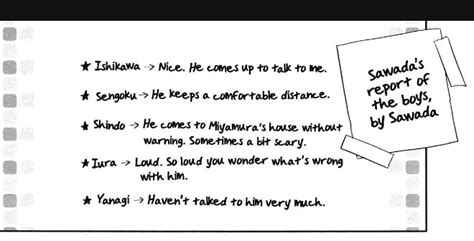 ★ Ishikawa → Nice. He comes up to talk to me.
★ Sengoku → He keeps a comfortable distance.
★ Shindo → He comes to Miyamura's house without
warning. Sometimes a bit scary.
★ Iura → Loud. So loud you wonder what's wrong
with him.
★ Yanagi → Haven't talked to him very much.
Sawada's
report of
the boys,
by Sawada